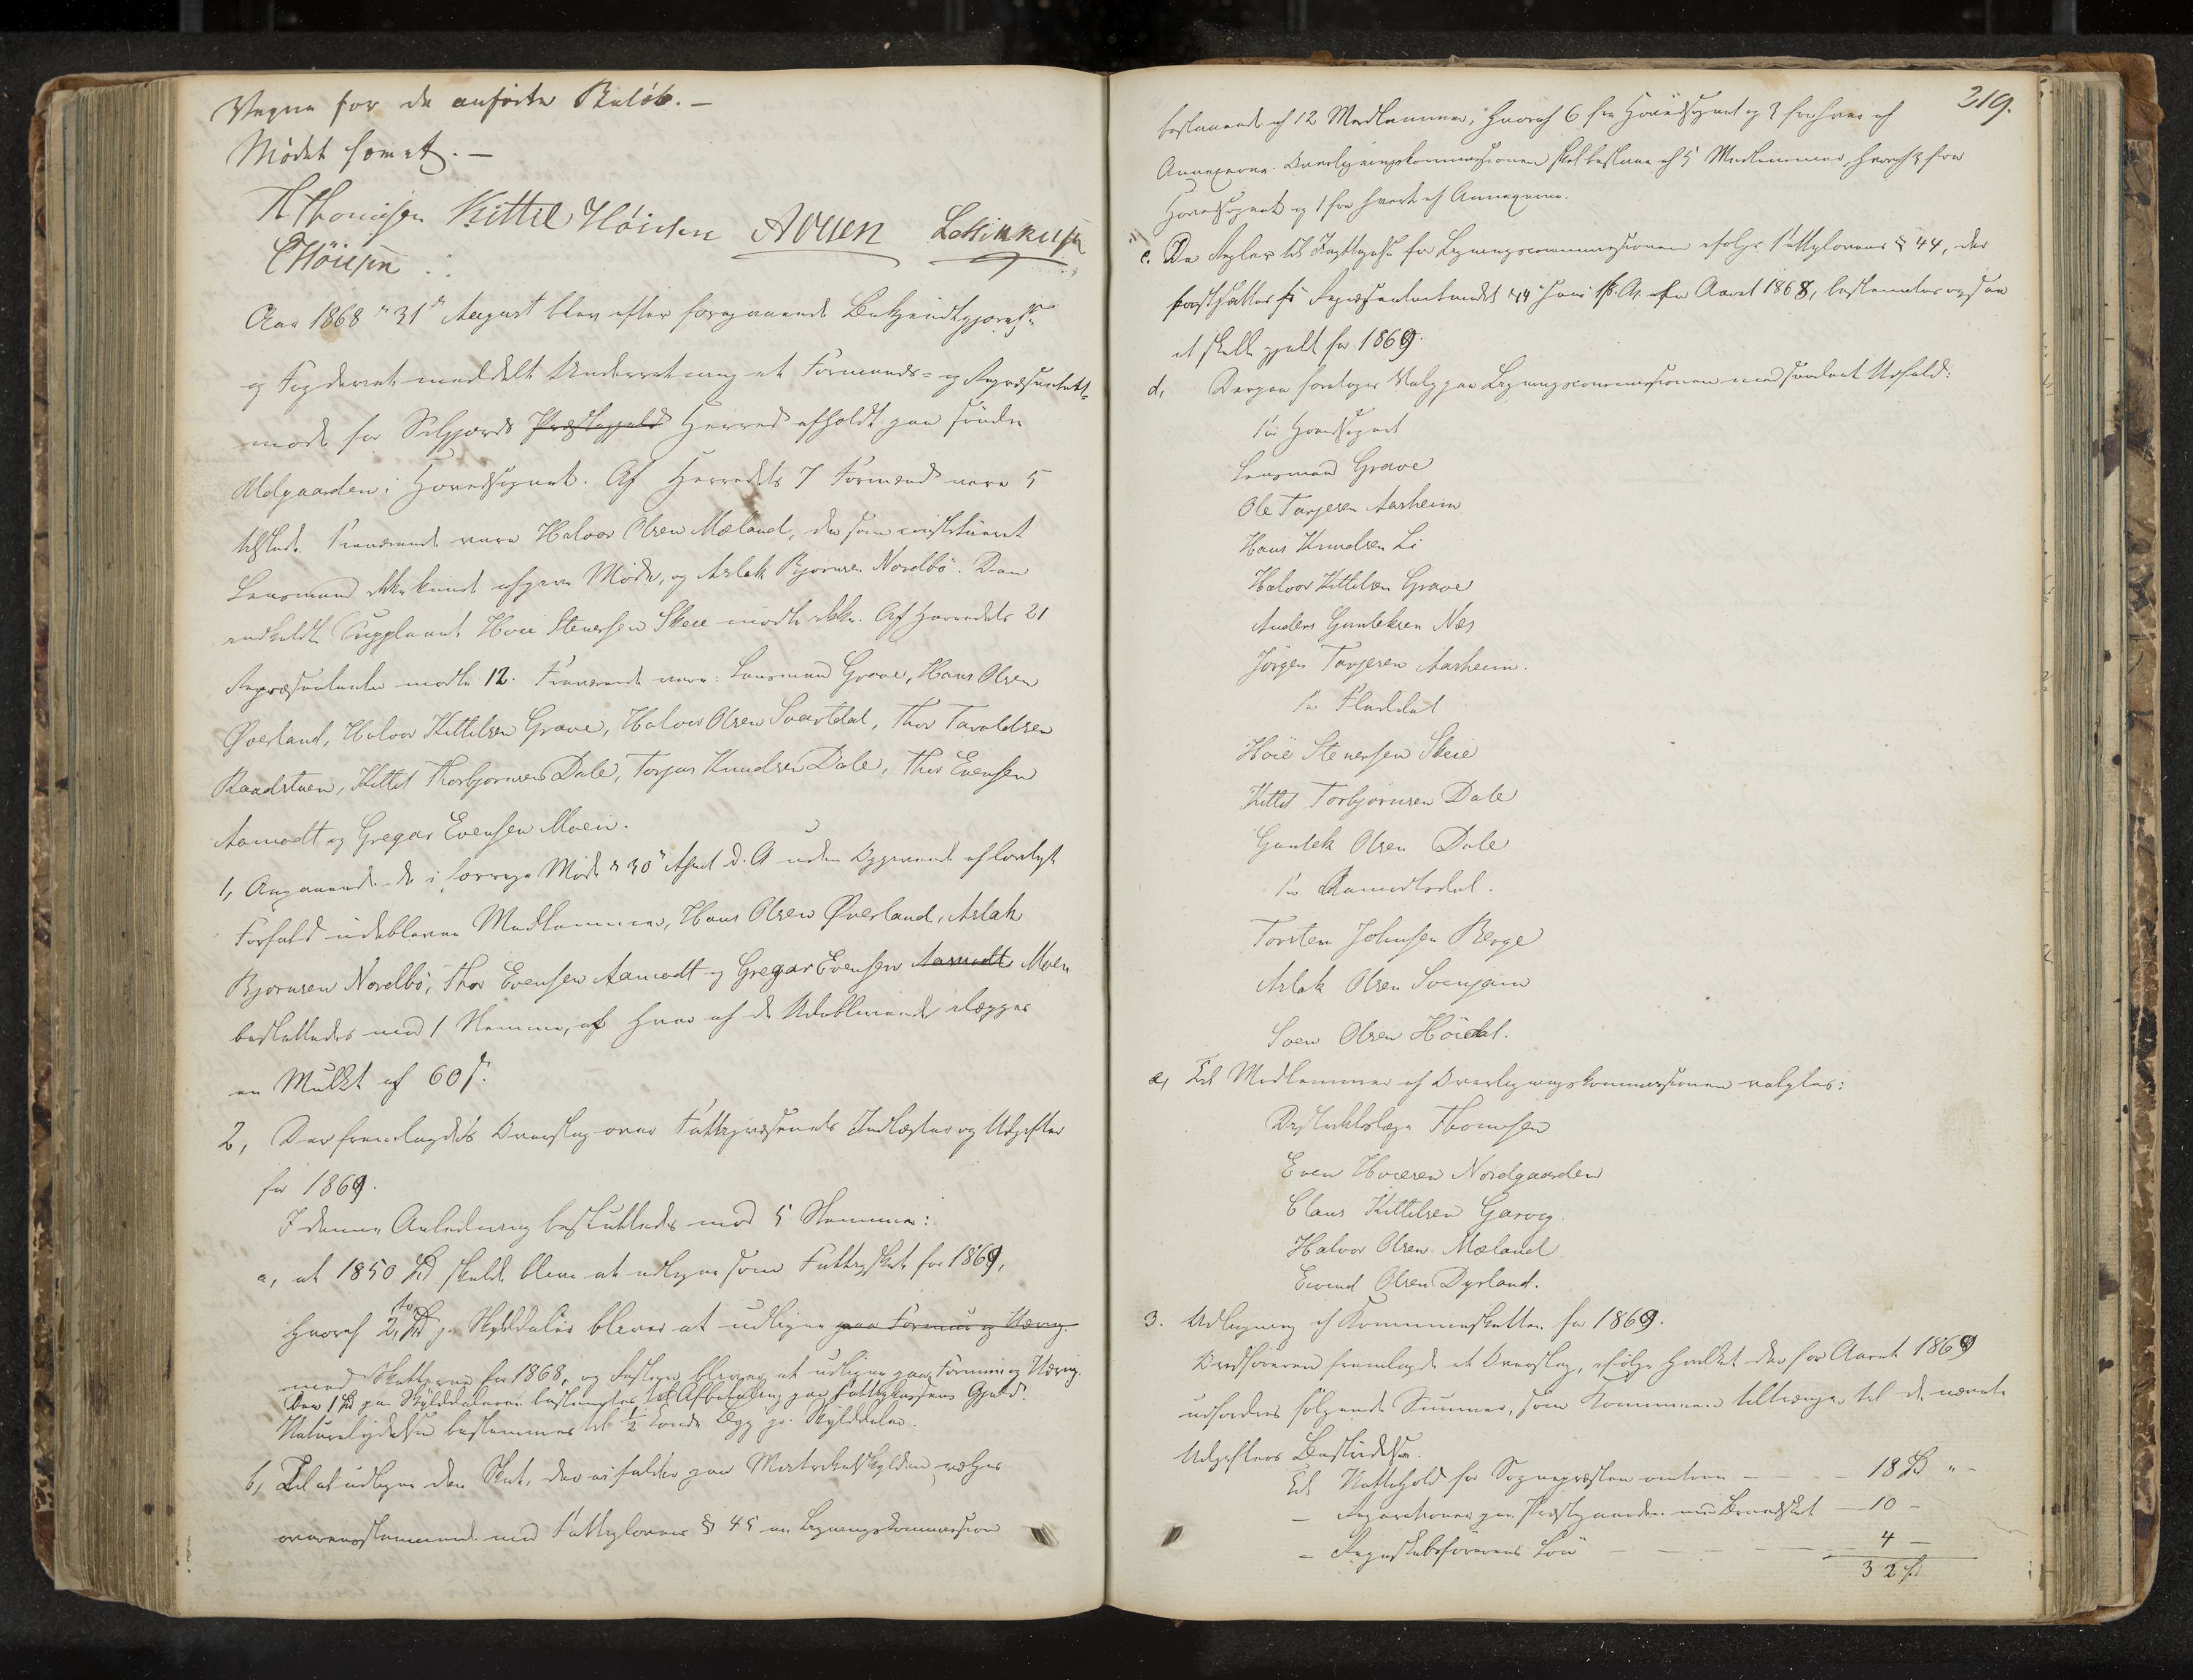 Vegne for de anførte Beløb. —
Mødet hævet. —
Thomesen Kittil Høidsn
Aar 1868 "31" August blev efter foregaaende Bekjendtgjørelse
og Fogderiet meddelt Underretning et Formands- og Repræsentant-
møde for Seljords Præstegjelds Herred afholdt paa søndre
Uldgaarden i Hovedsognet. Af Herredets 7 Formænd vare 5
tilstede. Fraværende vare Halvor Olsen Mæland, der som constitueret
Lensmand ikke kunde afgive Møde, og Aslak Bjørnsen Nordbø. Den
indkaldte Suppleant Hoie Stenersen Skeie mødte ikke. Af Herredets 21
Repræsentanter mødte 12. Fraværende vare: Lensmand Grave, Hans Olsen
Øverland, Halvor Kittilsen Grave, Halvor Olsen Svartdal, Thor Taraldsen
Raadstuen, Kittil Thorbjørnsen Dale, Torjus Knudsen Dale, Thor Evensen
Aamodt og Gregar Evensen Moen.
1, Angaaende de i forrige Møde "30" April d. A uden Opgivende af lovligt
Forfald udeblevne Medlemmer, Hans Olsen Øverland, Aslak
Bjørnsen Nordbø, Thor Evensen Aamodt og Gregar Evensen Aamodt Moen
besluttedes med 1 Stemme, at hver af de Udeblevne ilægges
en Mulkt af 60 s.
2, Der fremlagdes Overslag over Fattigvæsenets Indtægter og Udgifter
for 1869.
I denne Anledning besluttedes med 5 Stemmer:
a, at 1850 Spd skulde blive at udligne som Fattigskat for 1869,
hvoraf 2, to Spd pr. Skylddaler bliver at udligne paa Formue og Næring.
med Skatterne for 1868, og Resten bliver at udligne paa Formue og Næring.
Den 1 Spd paa Skylddaleren bestemtes til Afbetaling paa Fattigkassens Gjæld.
Naturalydelsen bestemmes til ½ Tønde Byg pr. Skylddaler.
b, Til at udligne den Skat, der ei falder paa Matrikelskylden, vælges
overensstemmende med Fattiglovens § 45 en Ligningskommission
219.
bestaaende af 12 Medlemmer, hvoraf 6 fra Hovedsognet og 3 fra hver af
Annexerne. Overligningskommissionen skal bestaae af 5 Medlemmer, hvoraf 3 fra
Hovedsognet og 1 fra hvert af Annexerne.
c. De Regler til Iagttagelse for Ligningscommissionen ifølge Fattiglovens § 44, der
fastsattes Repræsentantmødet Aaret 1868, bestemtes ogsaa
at skulle gjælde for 1869.
d, Derpaa foretoges Valg paa Ligningscommissionen med saadant Udfald:
Fra Hovedsognet
Lensmand Grave
Ole Tarjesen Aasheim
Hans Knudsen Li
Halvor Kittilsen Grave
Anders Gunleksen Næs
Jörgen Tarjesen Aasheim.
Fra Flatdal
Hoie Stenersen Skeie
Kittil Torbjørnsen Dale
Gunlek Olsen Dale
Fra Aamodtsdal.
Torsten Johnsen Berge
Aslak Olsen Svinjam
Sven Olsen Höidal.
e, Til Medlemmer af Overligningskommissionen valgtes:
Distriktslæge Thomesen
Even Hoiesen Nordgaarden
Claus Kittilsen Garvig
Halvor Olsen Mæland
Eivind Olsen Dyrland.
3. Udligning af Kommuneskatten for 1869.
Ordføreren fremlagde et Overslag, ifølge hvilket der for Aaret 1869
udfordres følgende Summer, som Kommunen tiltrænger til de nævnte
Udgifters Bestridelse.
Til Nattehold for Sognepræsten omtrent — — 18 Spd " -
— Reparationer paa Præstegaarden med Brandskat — 10 -
— Regnskabsførerens Løn — — — — 4 —
32 Spd